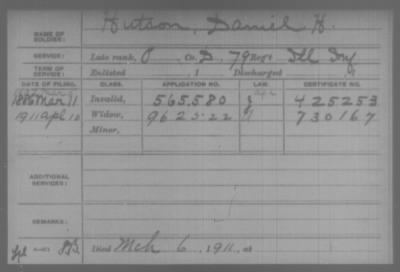 NAME OF SOLDIER: Hutson, Daniel H.
SERVICE: Late rank, P Co. D, 79 Reg't Ill Inf
TERM OF SERVICE: Enlisted , 1 Discharged , 1
DATE OF FILING. CLASS. APPLICATION NO. LAW. CERTIFICATE NO.
1886 Mar 11 Invalid, 565.580 425253
1911 Apl 10 Widow, 962522 730167
Minor,
ADDITIONAL SERVICES:
REMARKS:
Died Mch 6, 1911, at